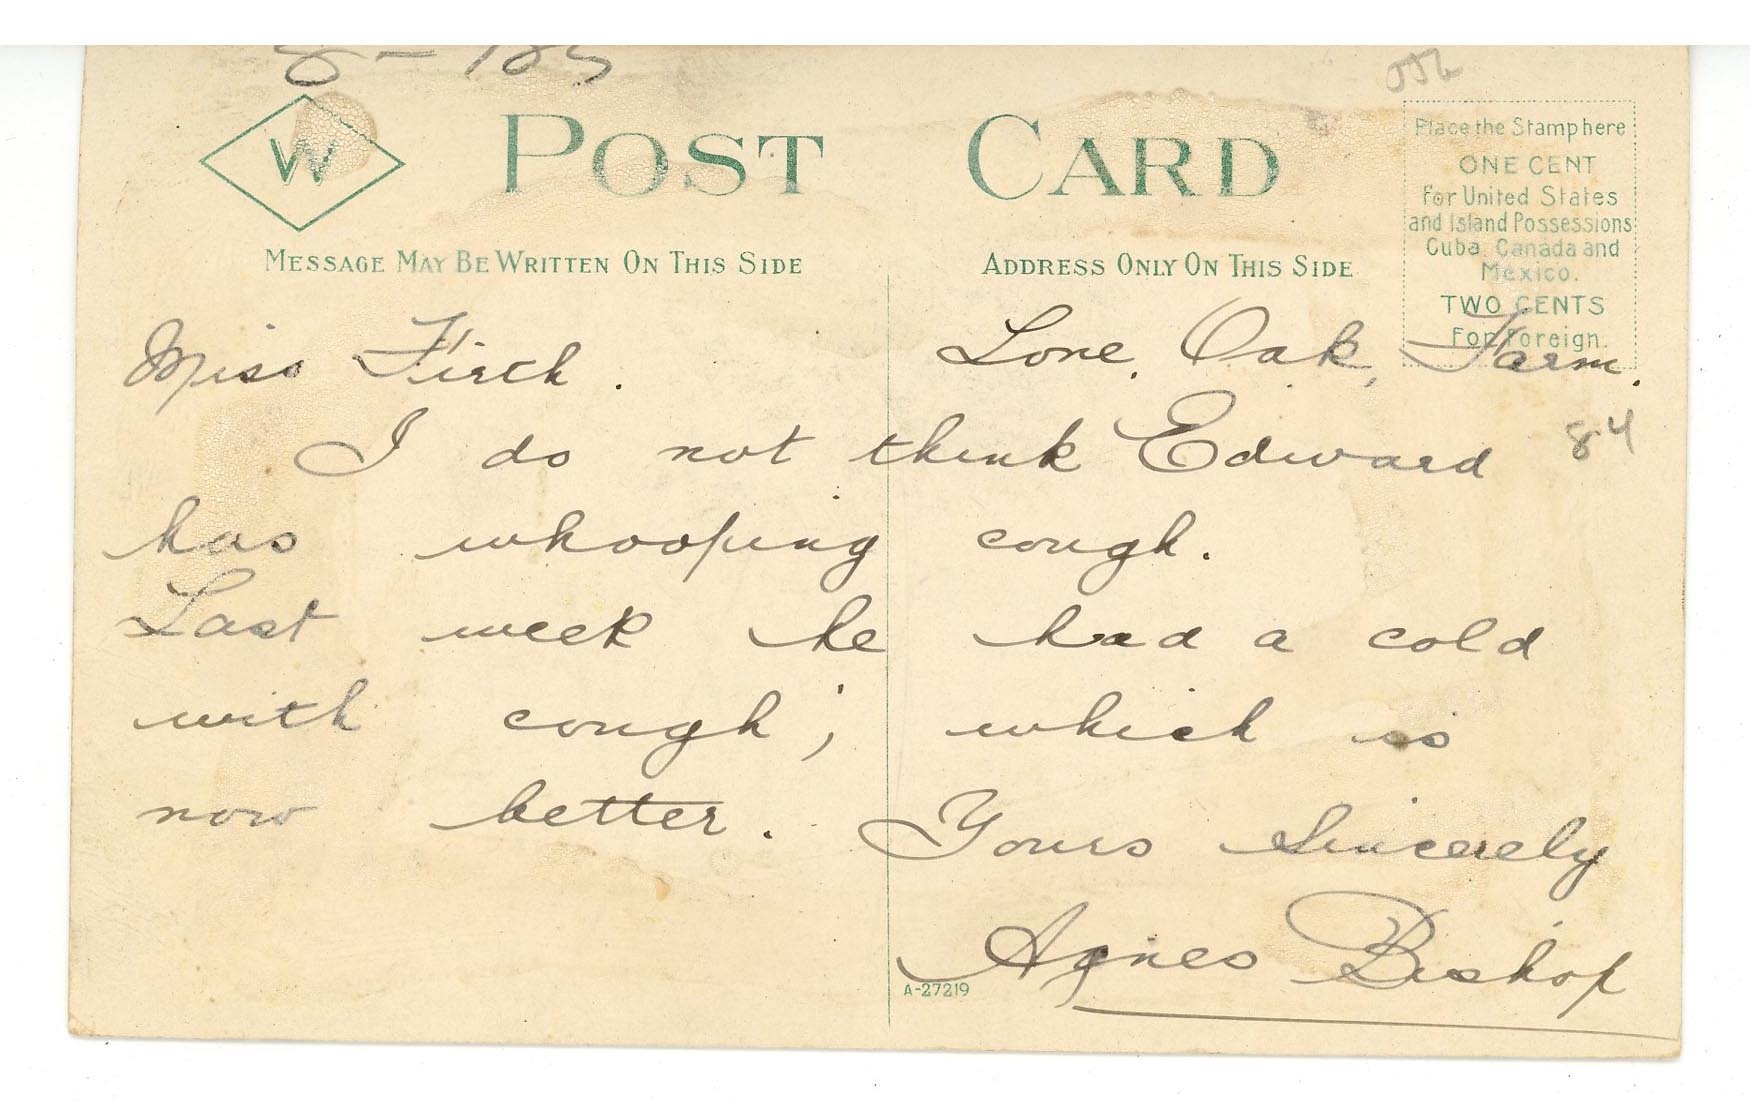 W
POST CARD
MESSAGE MAY BE WRITTEN ON THIS SIDE
ADDRESS ONLY ON THIS SIDE
Place the Stamp here
ONE CENT
For United States
and Island Possessions
Cuba, Canada and
Mexico.
TWO CENTS
For Foreign.
Miss
Lone, Oak, Farm.
84
I do not think Edward
has whooping cough.
Last week he had a cold
with cough; which is
now better. Yours Sincerely
Agnes Bishop
A-27219